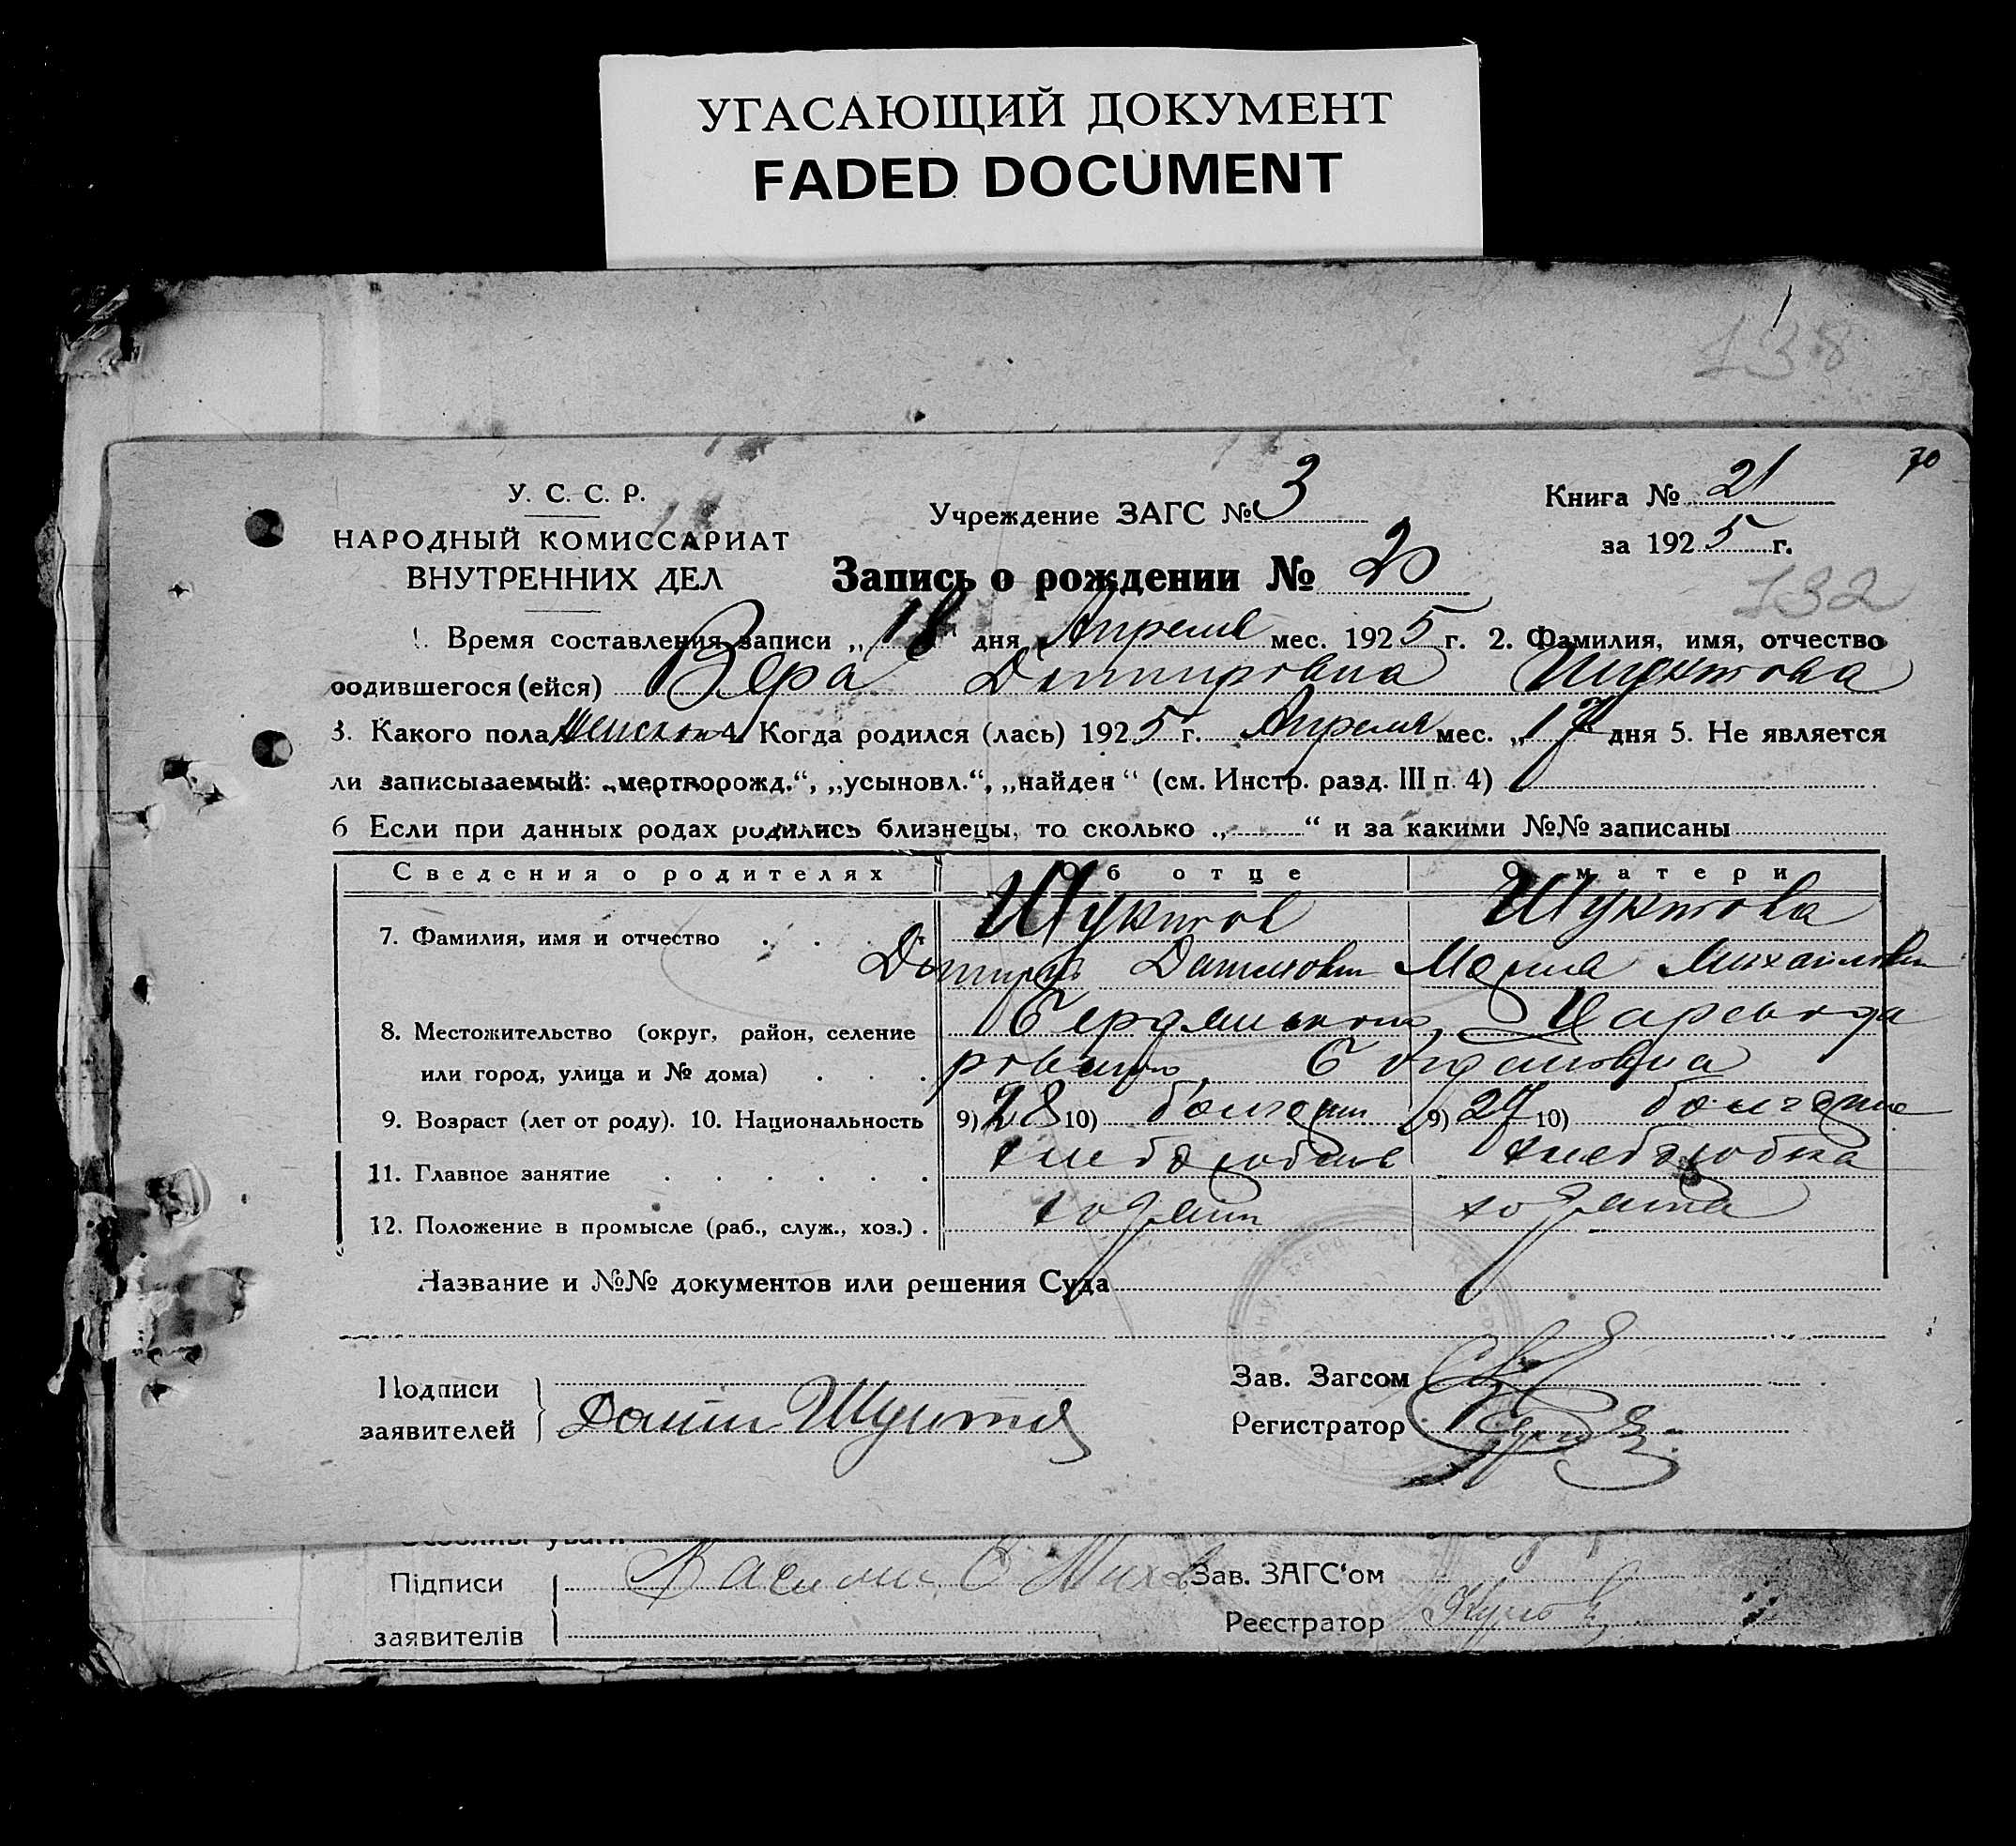 УГАСАЮЩИЙ ДОКУМЕНТ
FADED DOCUMENT
138
70
У. С. С. Р.
НАРОДНЫЙ КОМИССАРИАТ
ВНУТРЕННИХ ДЕЛ
Учреждение ЗАГС № 3
Книга № 21
за 1925 г.
Запись о рождении № 20
132
1. Время составления записи „18" дня Апреля мес. 1925 г. 2. Фамилия, имя, отчество
родившегося (ейся) Вера Дмитровна Шуктова
3. Какого пола женскаго 4. Когда родился (лась) 1925 г. Апреля мес. „17" дня 5. Не является
ли записываемый: „мертворожд.“, „усыновл.“, „найден“ (см. Инстр. разд. III п. 4)
6 Если при данных родах родились близнецы, то сколько „ “ и за какими №№ записаны
Сведения о родителях Об отце О матери
7. Фамилия, имя и отчество Шуктов Шуктова
Дмитрий Данилович Мария Михайловна
8. Местожительство (округ, район, селение
или город, улица и № дома)
9. Возраст (лет от роду). 10. Национальность 9) 28 10) болгарин 9) 27 10) болгарка
11. Главное занятие хлебороб
12. Положение в промысле (раб., служ., хоз.) хозяин хозяйка
Название и №№ документов или решения Суда
Подписи
заявителей Даниил Шуктов
Зав. Загсом
Регистратор
Особливі уваги
Підписи
заявителів
Зав. ЗАГС'ом
Реєстратор